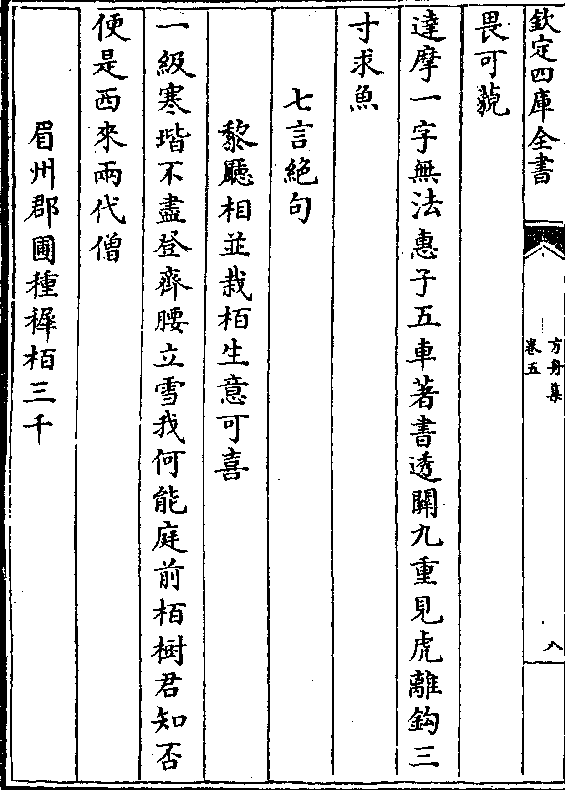 欽定四庫全書
方舟集
卷五
八
畏可藐
達摩一字無法惠子五車著書透關九重見虎離鈎三
寸求魚
七言絶句
黎㕔相並栽栢生意可喜
一級寒堦不盡登齊腰立雪我何能庭前栢樹君知否
便是西來兩代僧
眉州郡圃種穉栢三千